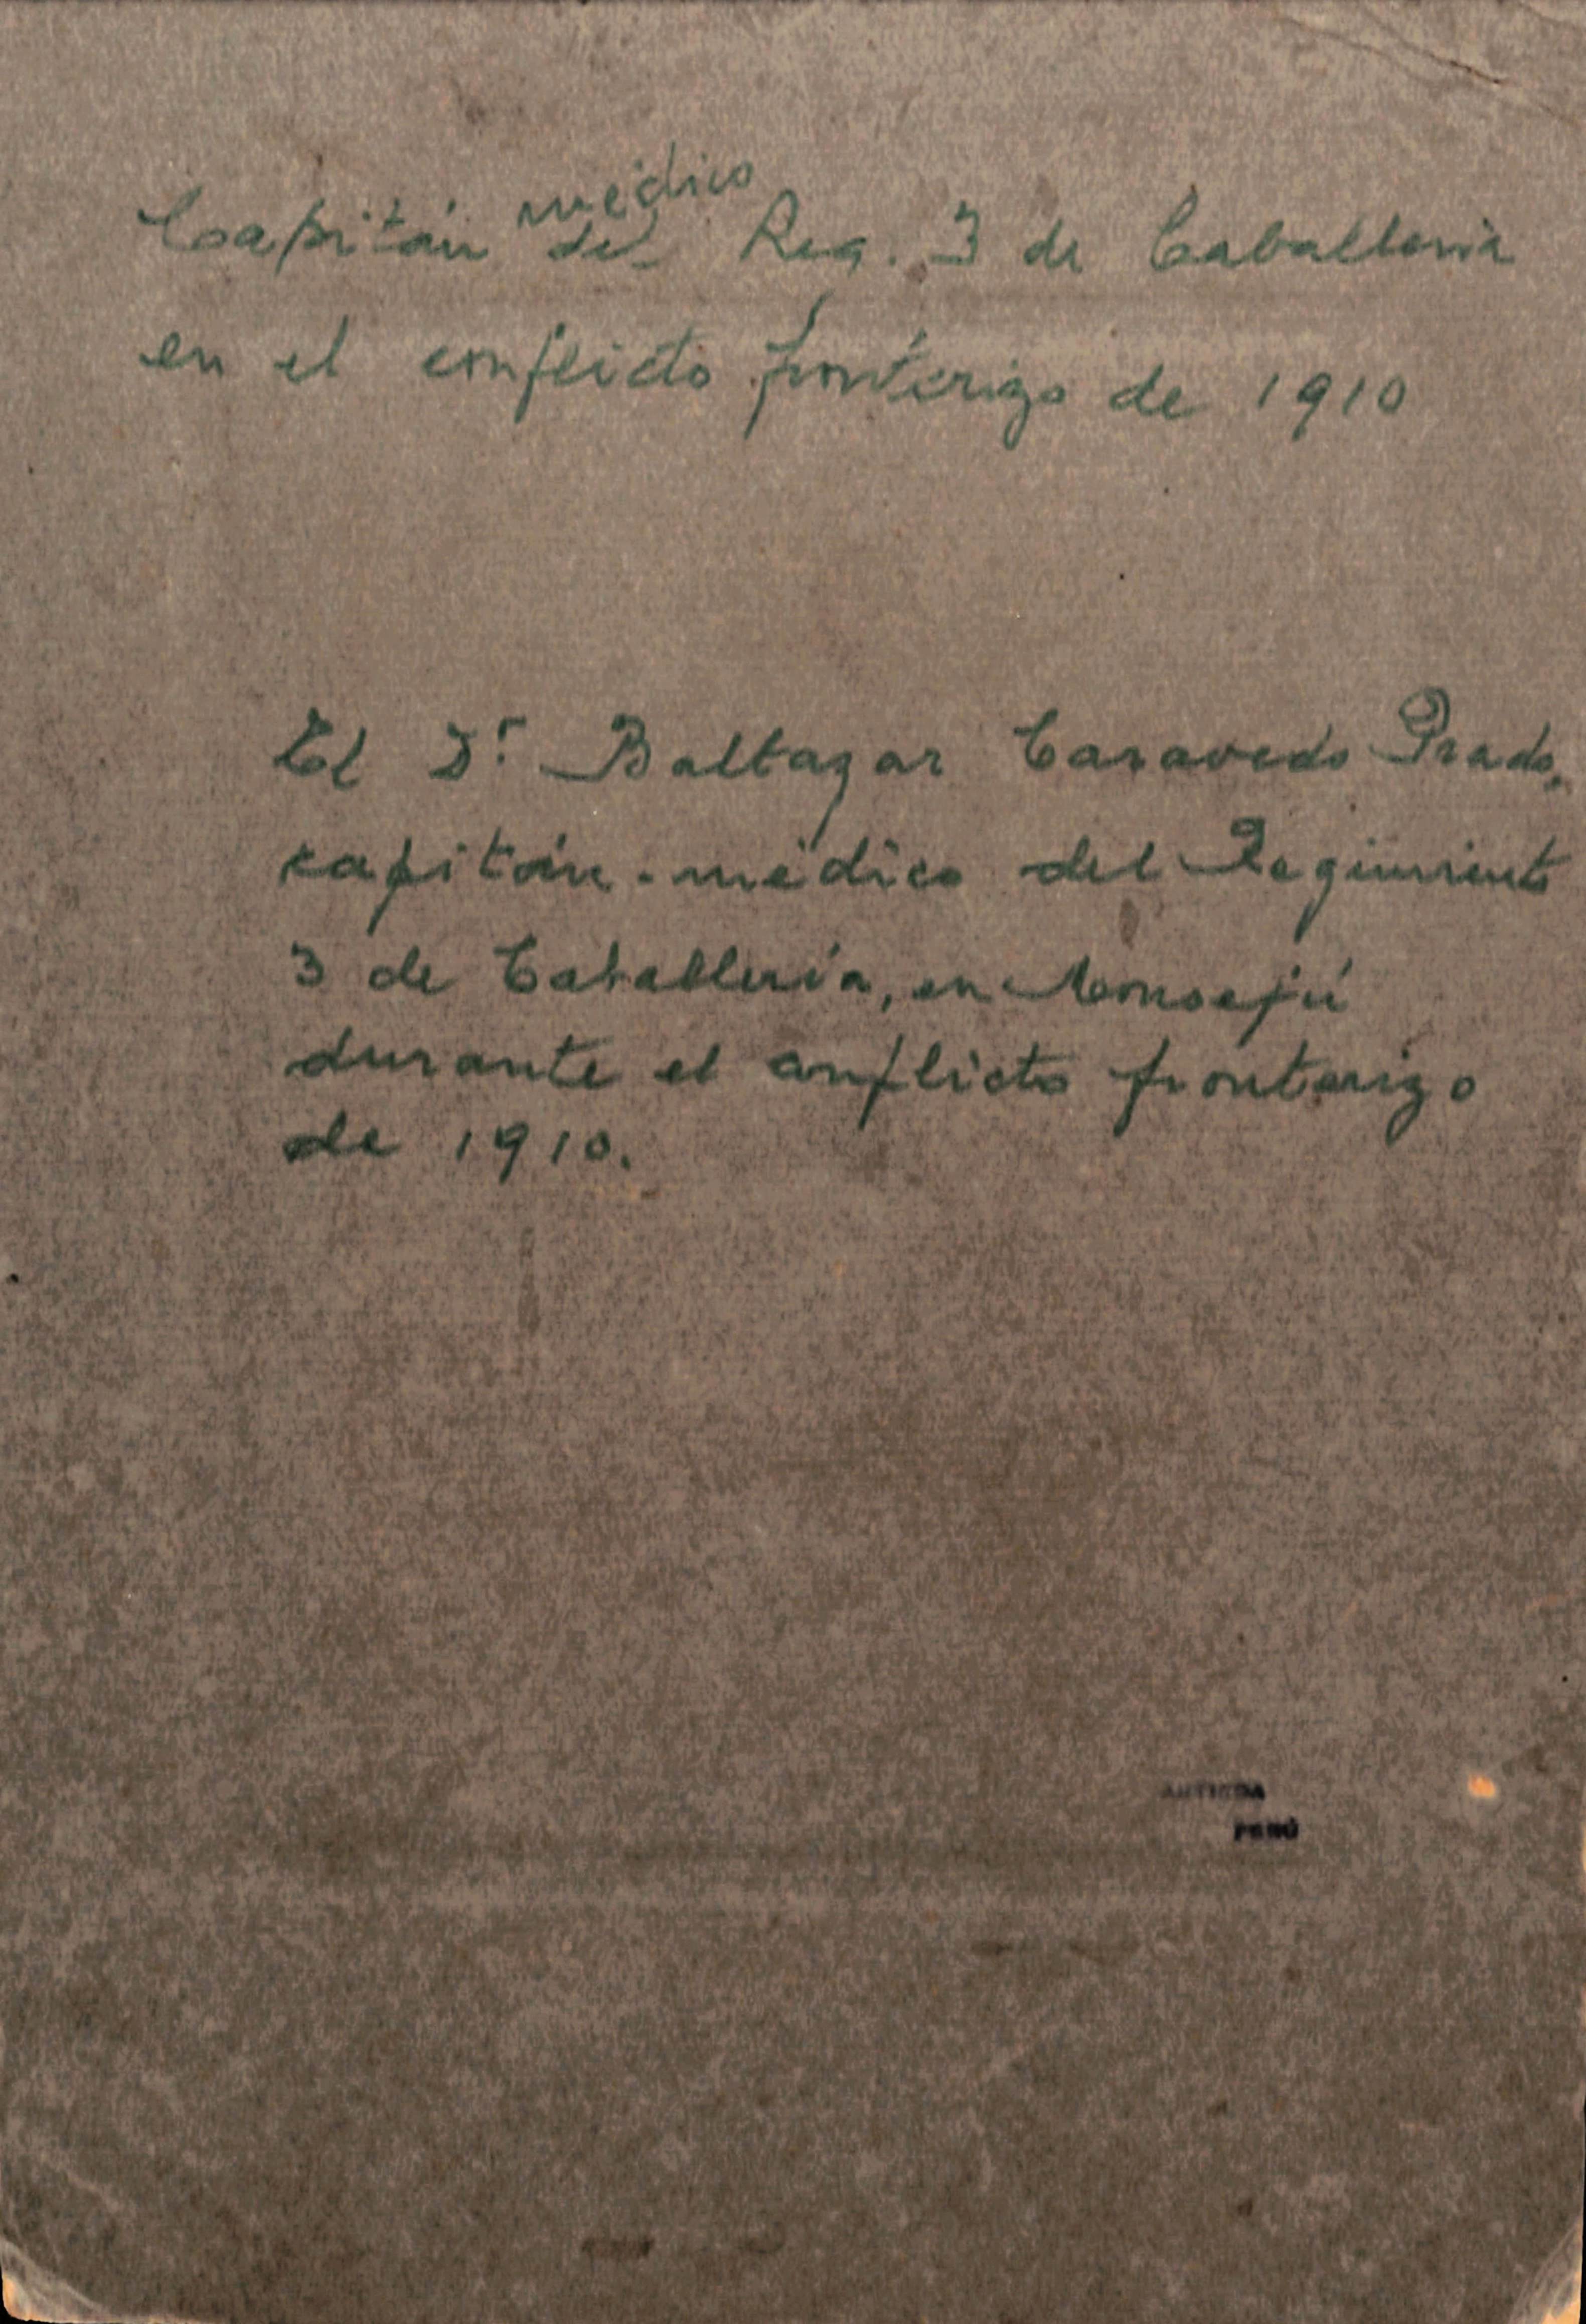 Capitán médico del Reg. 3 de Caballeria
en el conflicto fronterizo de 1910
El Dr Baltazar Caravedo Prado,
capitán-médico del Regimiento
3 de Caballería, en Monsefú
durante el conflicto fronterizo
de 1910.
PERÚ